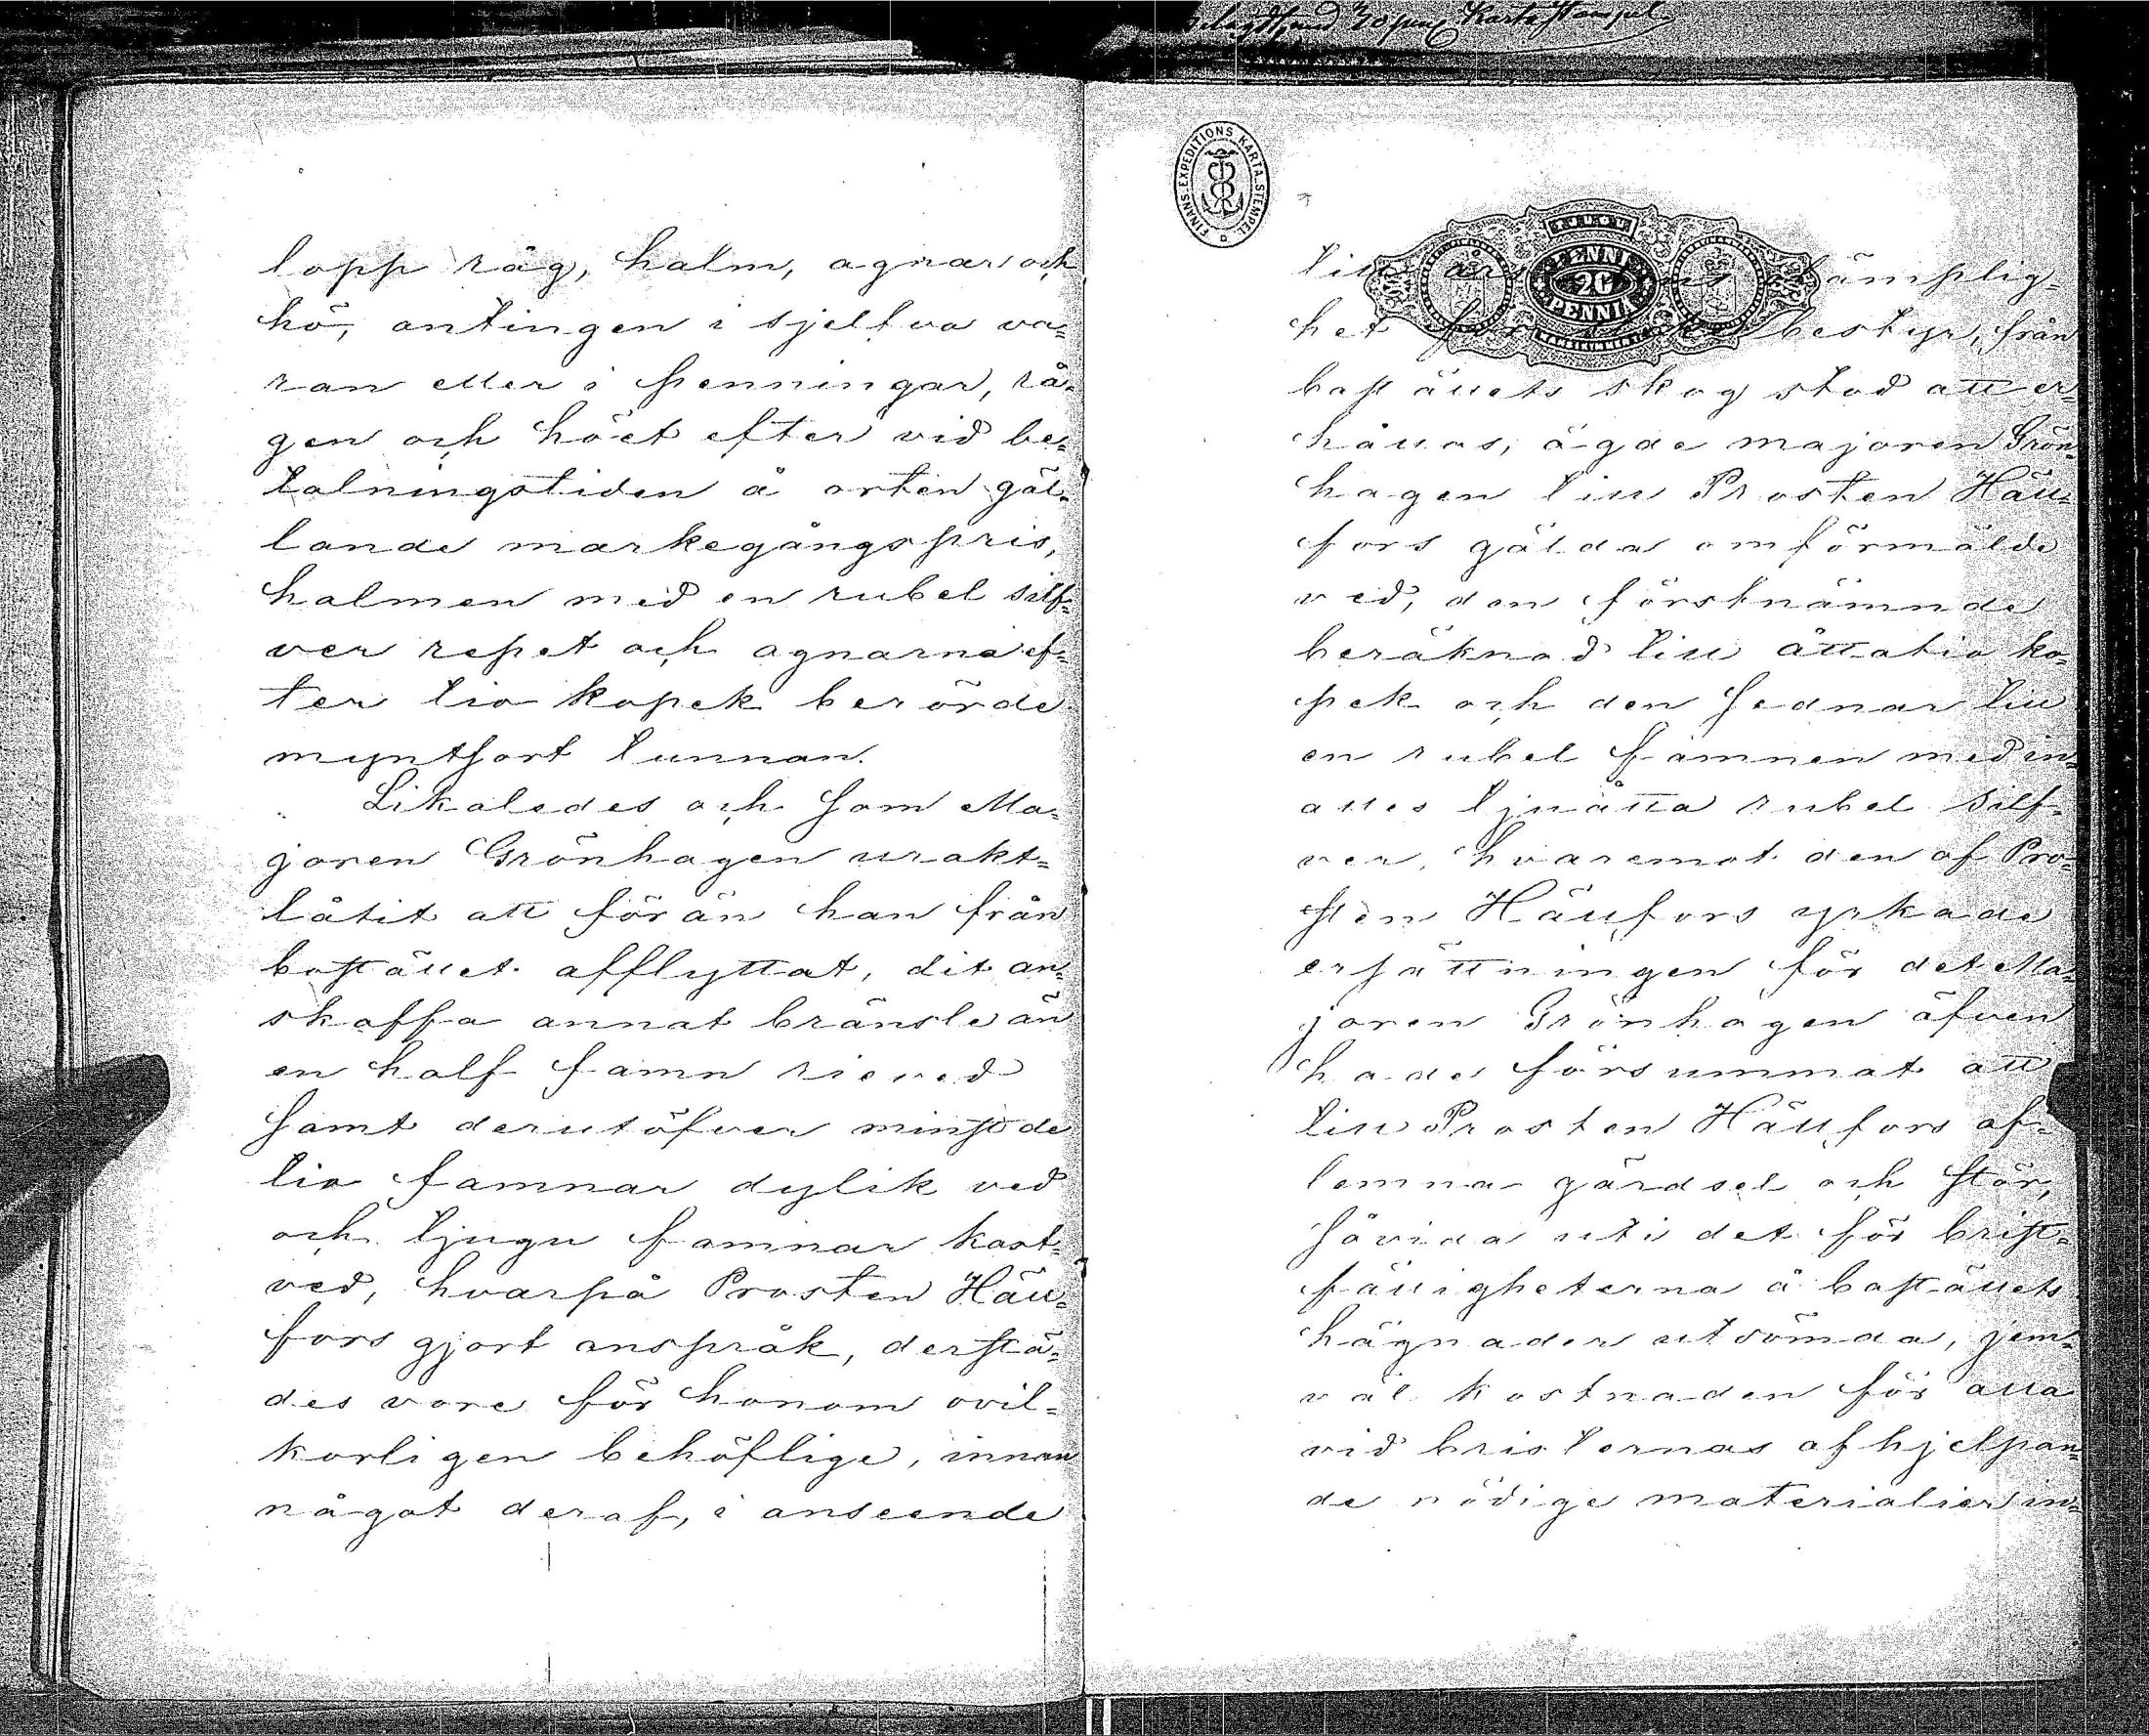 lopp råg, halm, agnar och
hö, antingen i sjelfva va=
ran eller i penningar, rå=
gen och höet efter vid be=
talningstiden å orten gäl=
lande markegångspris,
halmen med en rubel silf=
ver repet och agnarna ef=
ter tio kopek berörde
myntsort tunnan.
Likaledes och som Ma=
joren Grönhagen urakt=
låtit att förän han från
bostället afflyttat, dit an=
skaffa annat bränsle än
en half famn rieved
samt derutöfver minst de
tio famnar dylik ved
och tjugu famnar kast=
ved, hvarpå Prosten Häll=
fors gjort anspråk, derstä=
des vore för honom ovil=
korligen behöflige, innan
något deraf, i anseende
FINANS-EXPEDITIONS KARTA-STEMPEL
PENNI
20
PENNIÄ
till årstidens olämplig=
het för slikt bestyr, från
boställets skog stod att er=
hållas, ägde majoren Grön=
hagen till Prosten Häll=
fors gälda omförmälde
ved, den förstnämnde
beräknad till åttatio ko=
pek och den sednar till
en rubel famnen med in=
alles tjuåtta rubel silf=
ver, hvaremot den af Pro=
sten Hällfors yrkade
ersättningen för det Ma=
joren Grönhagen äfven
hade försummat att
till Prosten Hällfors af=
lemna gärdsel och stör,
såvida uti det för brist=
fälligheterna å boställets
hägnader utdömda, jem=
väl kostnaden för alla
vid bristernas afhjelpan=
de nödige materialier in=